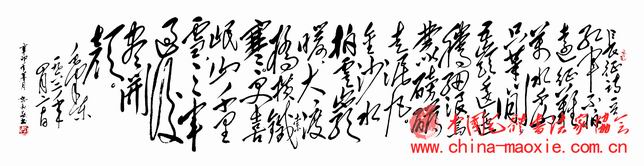 长征诗一首
红军不怕
远征难
万水千山
只等闲
五岭逶迤
腾细浪乌
蒙磅礴
走泥丸
金沙水
拍云崖
暖大渡
桥横铁
索
寒更喜
岷山千里
雪三军
过后
尽开
颜。
毛泽东
一九六二年
四月二十日
中国毛体书法家协会
www.china-maoxie.com.cn